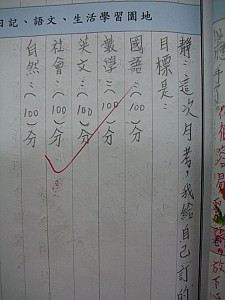 日記、語文、生活學習園地
靜：這次月考，我給自己訂的
目標是：
國語：（100）分
數學：（100）分
英文：（100）分
社會：（100）分
自然：（100）分